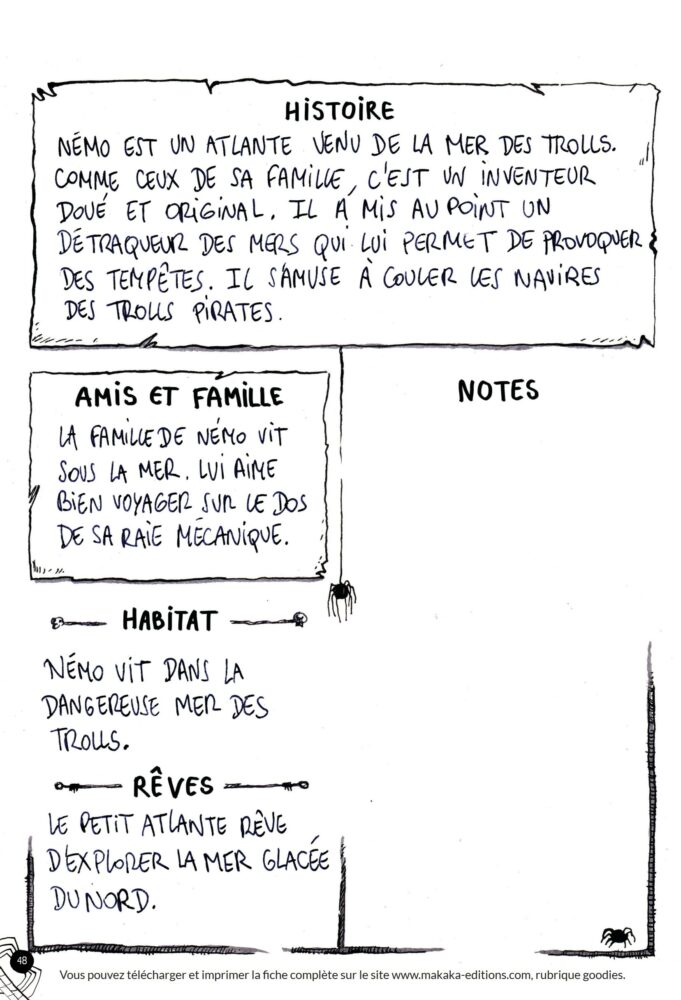 HISTOIRE
NÉMO EST UN ATLANTE VENU DE LA MER DES TROLLS.
COMME CEUX DE SA FAMILLE, C'EST UN INVENTEUR
DOUÉ ET ORIGINAL. IL A MIS AU POINT UN
DÉTRAQUEUR DES MERS QUI LUI PERMET DE PROVOQUER
DES TEMPÊTES. IL S'AMUSE À COULER LES NAVIRES
DES TROLLS PIRATES.
AMIS ET FAMILLE
LA FAMILLE DE NÉMO VIT
SOUS LA MER. LUI AIME
BIEN VOYAGER SUR LE DOS
DE SA RAIE MÉCANIQUE.
NOTES
HABITAT
NÉMO VIT DANS LA
DANGEREUSE MER DES
TROLLS.
RÊVES
LE PETIT ATLANTE RÊVE
D'EXPLORER LA MER GLACÉE
DU NORD.
48
Vous pouvez télécharger et imprimer la fiche complète sur le site www.makaka-editions.com, rubrique goodies.